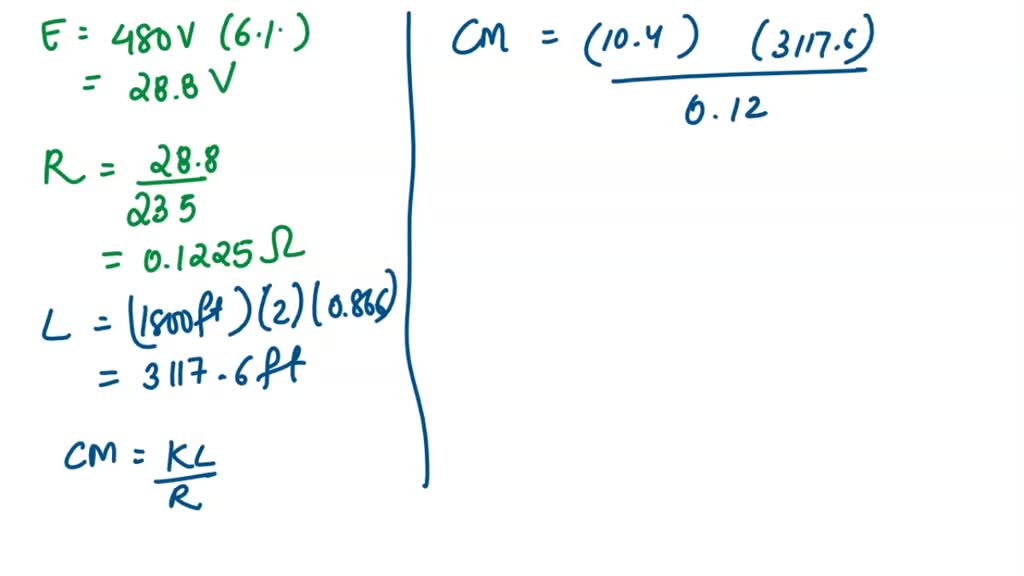 E = 480V (6%)
= 28.8 V
R = 28.8 / 235
= 0.1225 Ω
L = (1800ft) (2) (0.866)
= 3117.6 ft
CM = KL / R
CM = (10.4) (3117.6) / 0.12